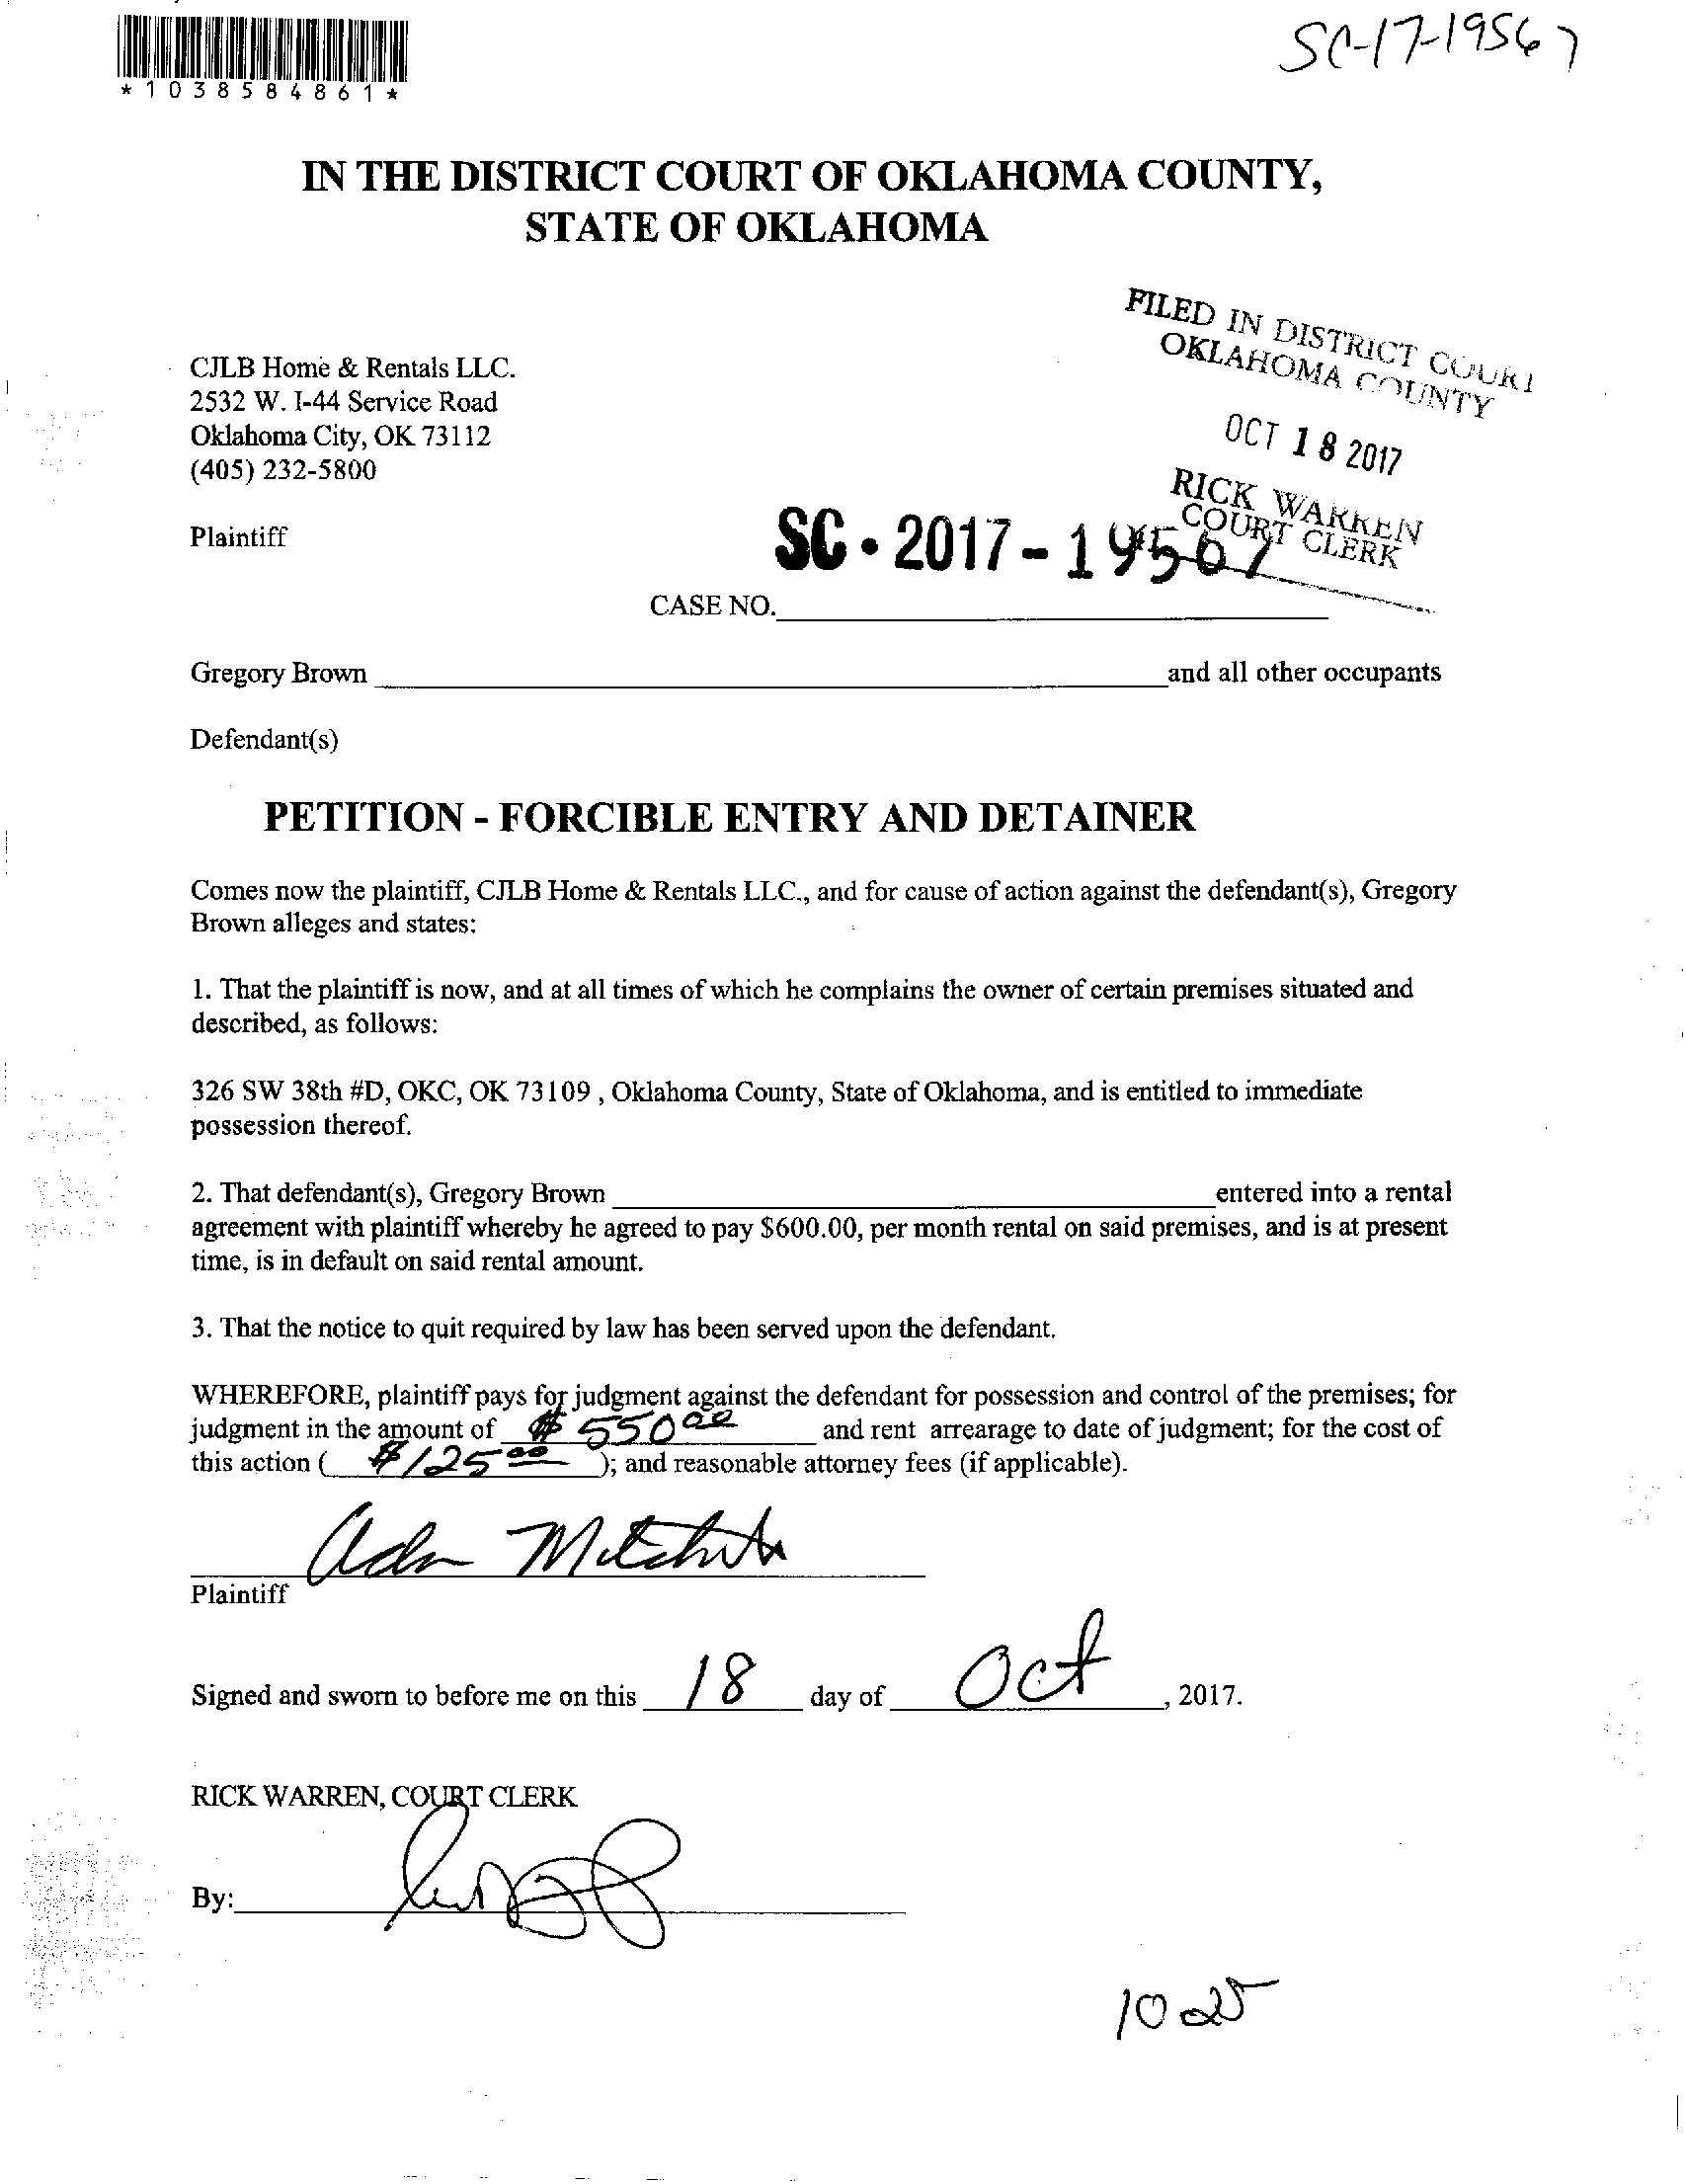 SC-17-19567
*1038584861*
IN THE DISTRICT COURT OF OKLAHOMA COUNTY,
STATE OF OKLAHOMA
FILED IN DISTRICT COURT
OKLAHOMA COUNTY
OCT 18 2017
RICK WARREN
COURT CLERK
CJLB Home & Rentals LLC.
2532 W. I-44 Service Road
Oklahoma City, OK 73112
(405) 232-5800
Plaintiff
SC • 2017 - 19567
CASE NO.
Gregory Brown and all other occupants
Defendant(s)
PETITION - FORCIBLE ENTRY AND DETAINER
Comes now the plaintiff, CJLB Home & Rentals LLC., and for cause of action against the defendant(s), Gregory
Brown alleges and states:
1. That the plaintiff is now, and at all times of which he complains the owner of certain premises situated and
described, as follows:
326 SW 38th #D, OKC, OK 73109 , Oklahoma County, State of Oklahoma, and is entitled to immediate
possession thereof.
2. That defendant(s), Gregory Brown entered into a rental
agreement with plaintiff whereby he agreed to pay $600.00, per month rental on said premises, and is at present
time, is in default on said rental amount.
3. That the notice to quit required by law has been served upon the defendant.
WHEREFORE, plaintiff pays for judgment against the defendant for possession and control of the premises; for
judgment in the amount of $550 00 and rent arrearage to date of judgment; for the cost of
this action ( $125 00 ); and reasonable attorney fees (if applicable).
Plaintiff
Signed and sworn to before me on this 18 day of Oct, 2017.
RICK WARREN, COURT CLERK
By:
10 25